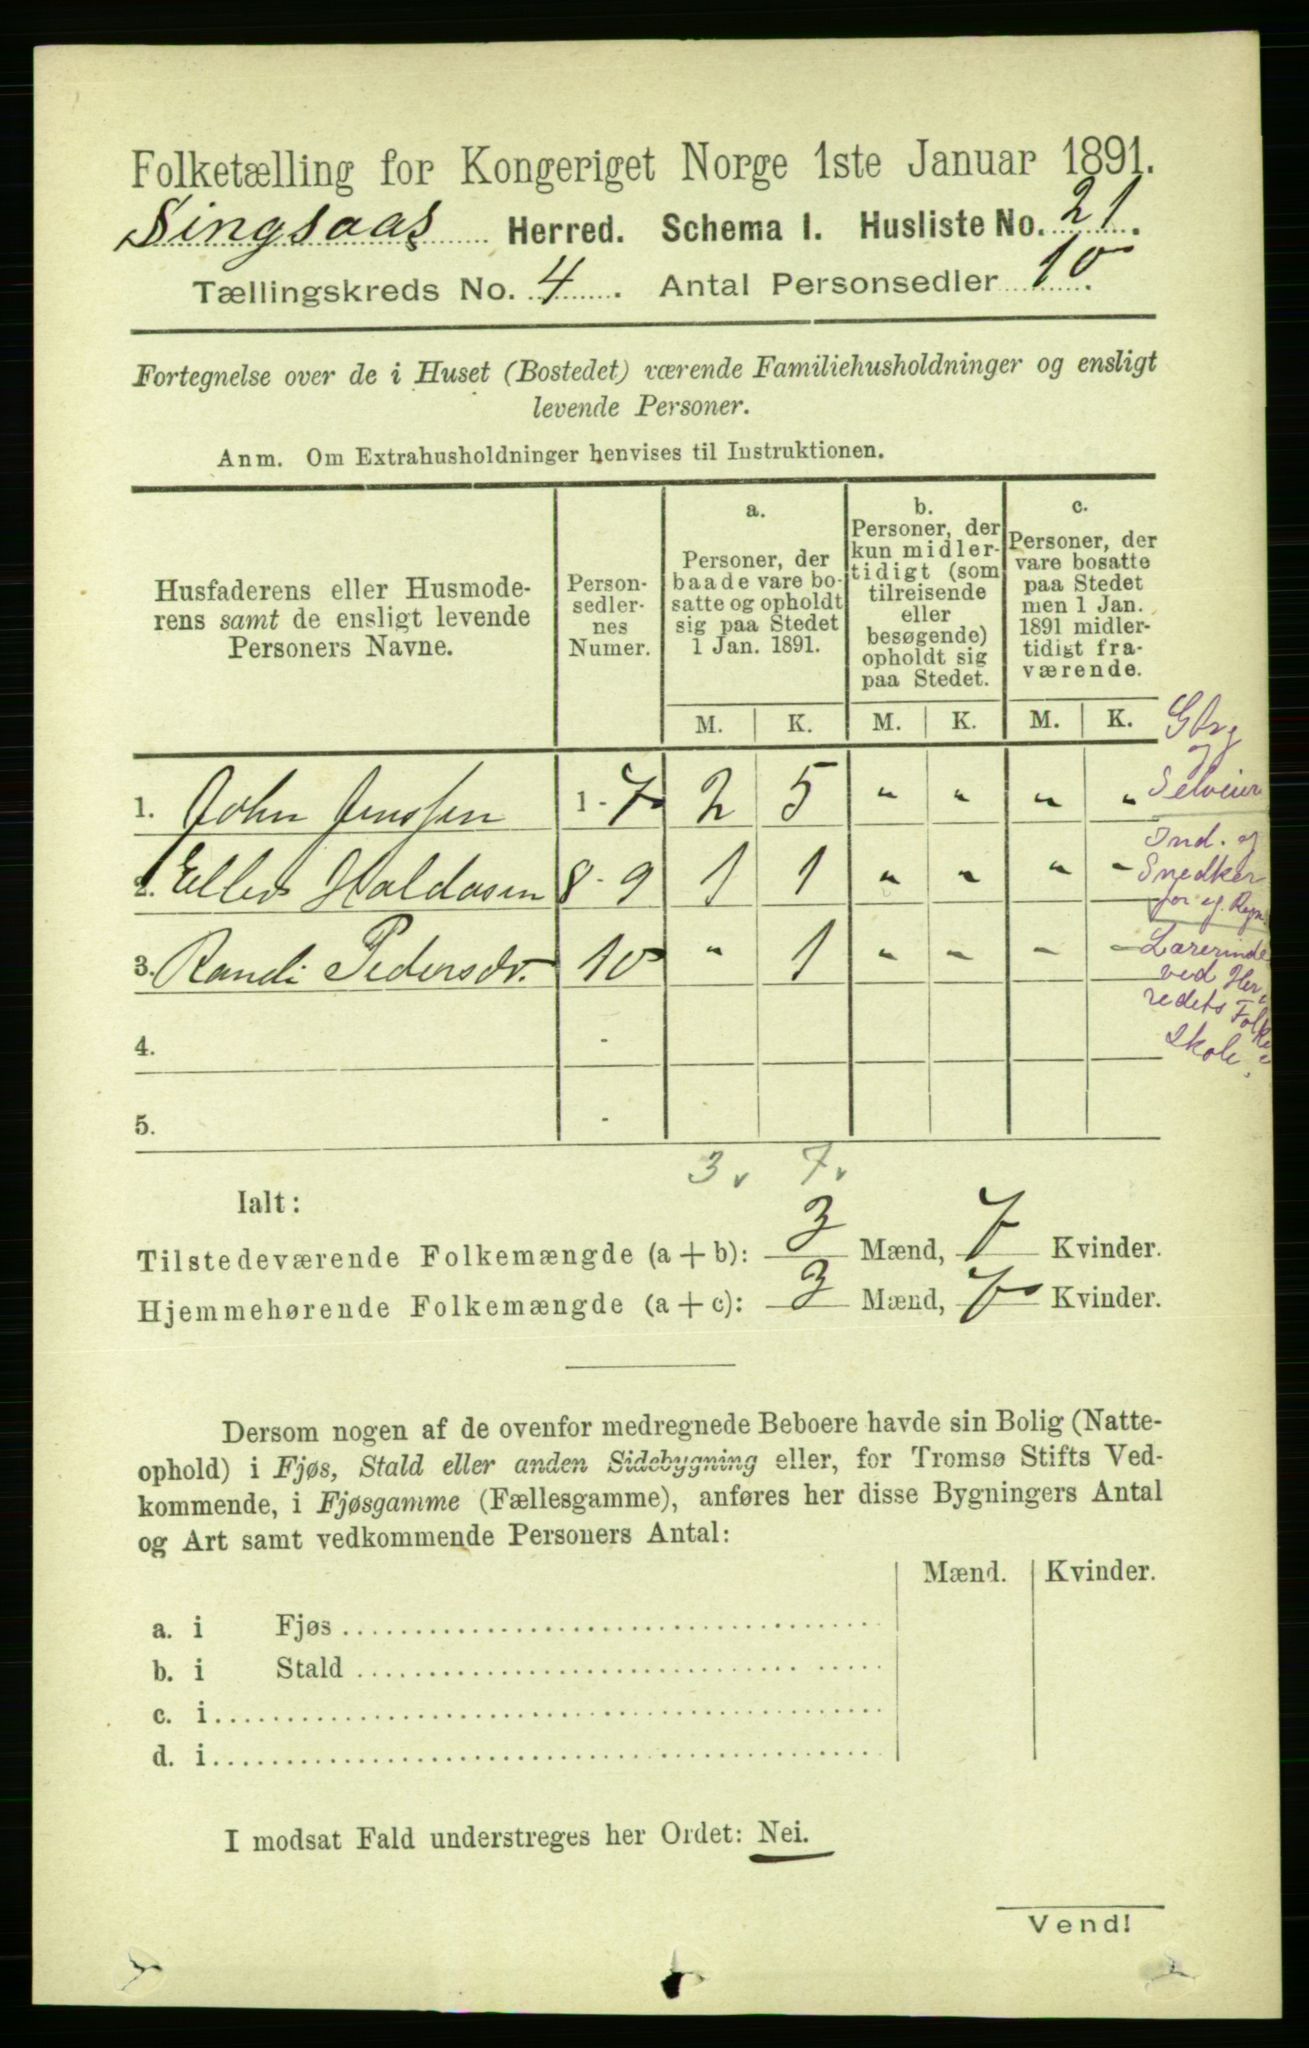 Folketælling for Kongeriget Norge 1ste Januar 1891.
Singsaas Herred. Schema I. Husliste No. 21.
Tællingskreds No. 4. Antal Personsedler 10.
Fortegnelse over de i Huset (Bostedet) værende Familiehusholdninger og ensligt
levende Personer.
Anm. Om Extrahusholdninger henvises til Instruktionen.
Husfaderens eller Husmode-
rens samt de ensligt levende
Personers Navne.
Person-
sedler-
nes
Numer.
a.
Personer, der
baade vare bo-
satte og opholdt
sig paa Stedet
1 Jan. 1891.
b.
Personer, der
kun midler-
tidigt (som
tilreisende
eller
besøgende)
opholdt sig
paa Stedet.
c.
Personer, der
vare bosatte
paa Stedet
men 1 Jan.
1891 midler-
tidigt fra-
værende.
M. K. M. K. M. K.
1. John Jenssen 1 - 7 2 5 " " " "
Gbrg
og
Selveier
2. Ellev Haldosen 8 - 9 1 1 " " " "
Ind. og
Snedker
for eg. Regn.
3. Randi Pedersdr. 10 " 1 " - - -
Lærerinde
ved Her-
redets Folke
skole.
4. -
5. -
3 v 7 v
Ialt:
Tilstedeværende Folkemængde (a + b): 3 Mænd, 7 Kvinder.
Hjemmehørende Folkemængde (a + c): 3 Mænd, 7 Kvinder.
Dersom nogen af de ovenfor medregnede Beboere havde sin Bolig (Natte-
ophold) i Fjøs, Stald eller anden Sidebygning eller, for Tromsø Stifts Ved-
kommende, i Fjøsgamme (Fællesgamme), anføres her disse Bygningers Antal
og Art samt vedkommende Personers Antal:
Mænd. Kvinder.
a. i Fjøs
b. i Stald
c. i
d. i
I modsat Fald understreges her Ordet: Nei.
Vend!